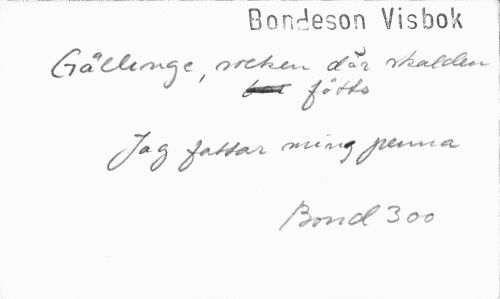 Bondeson Visbok
Gällinge, socken där skalden
fötts
Jag fattar ming penna
Bond 300